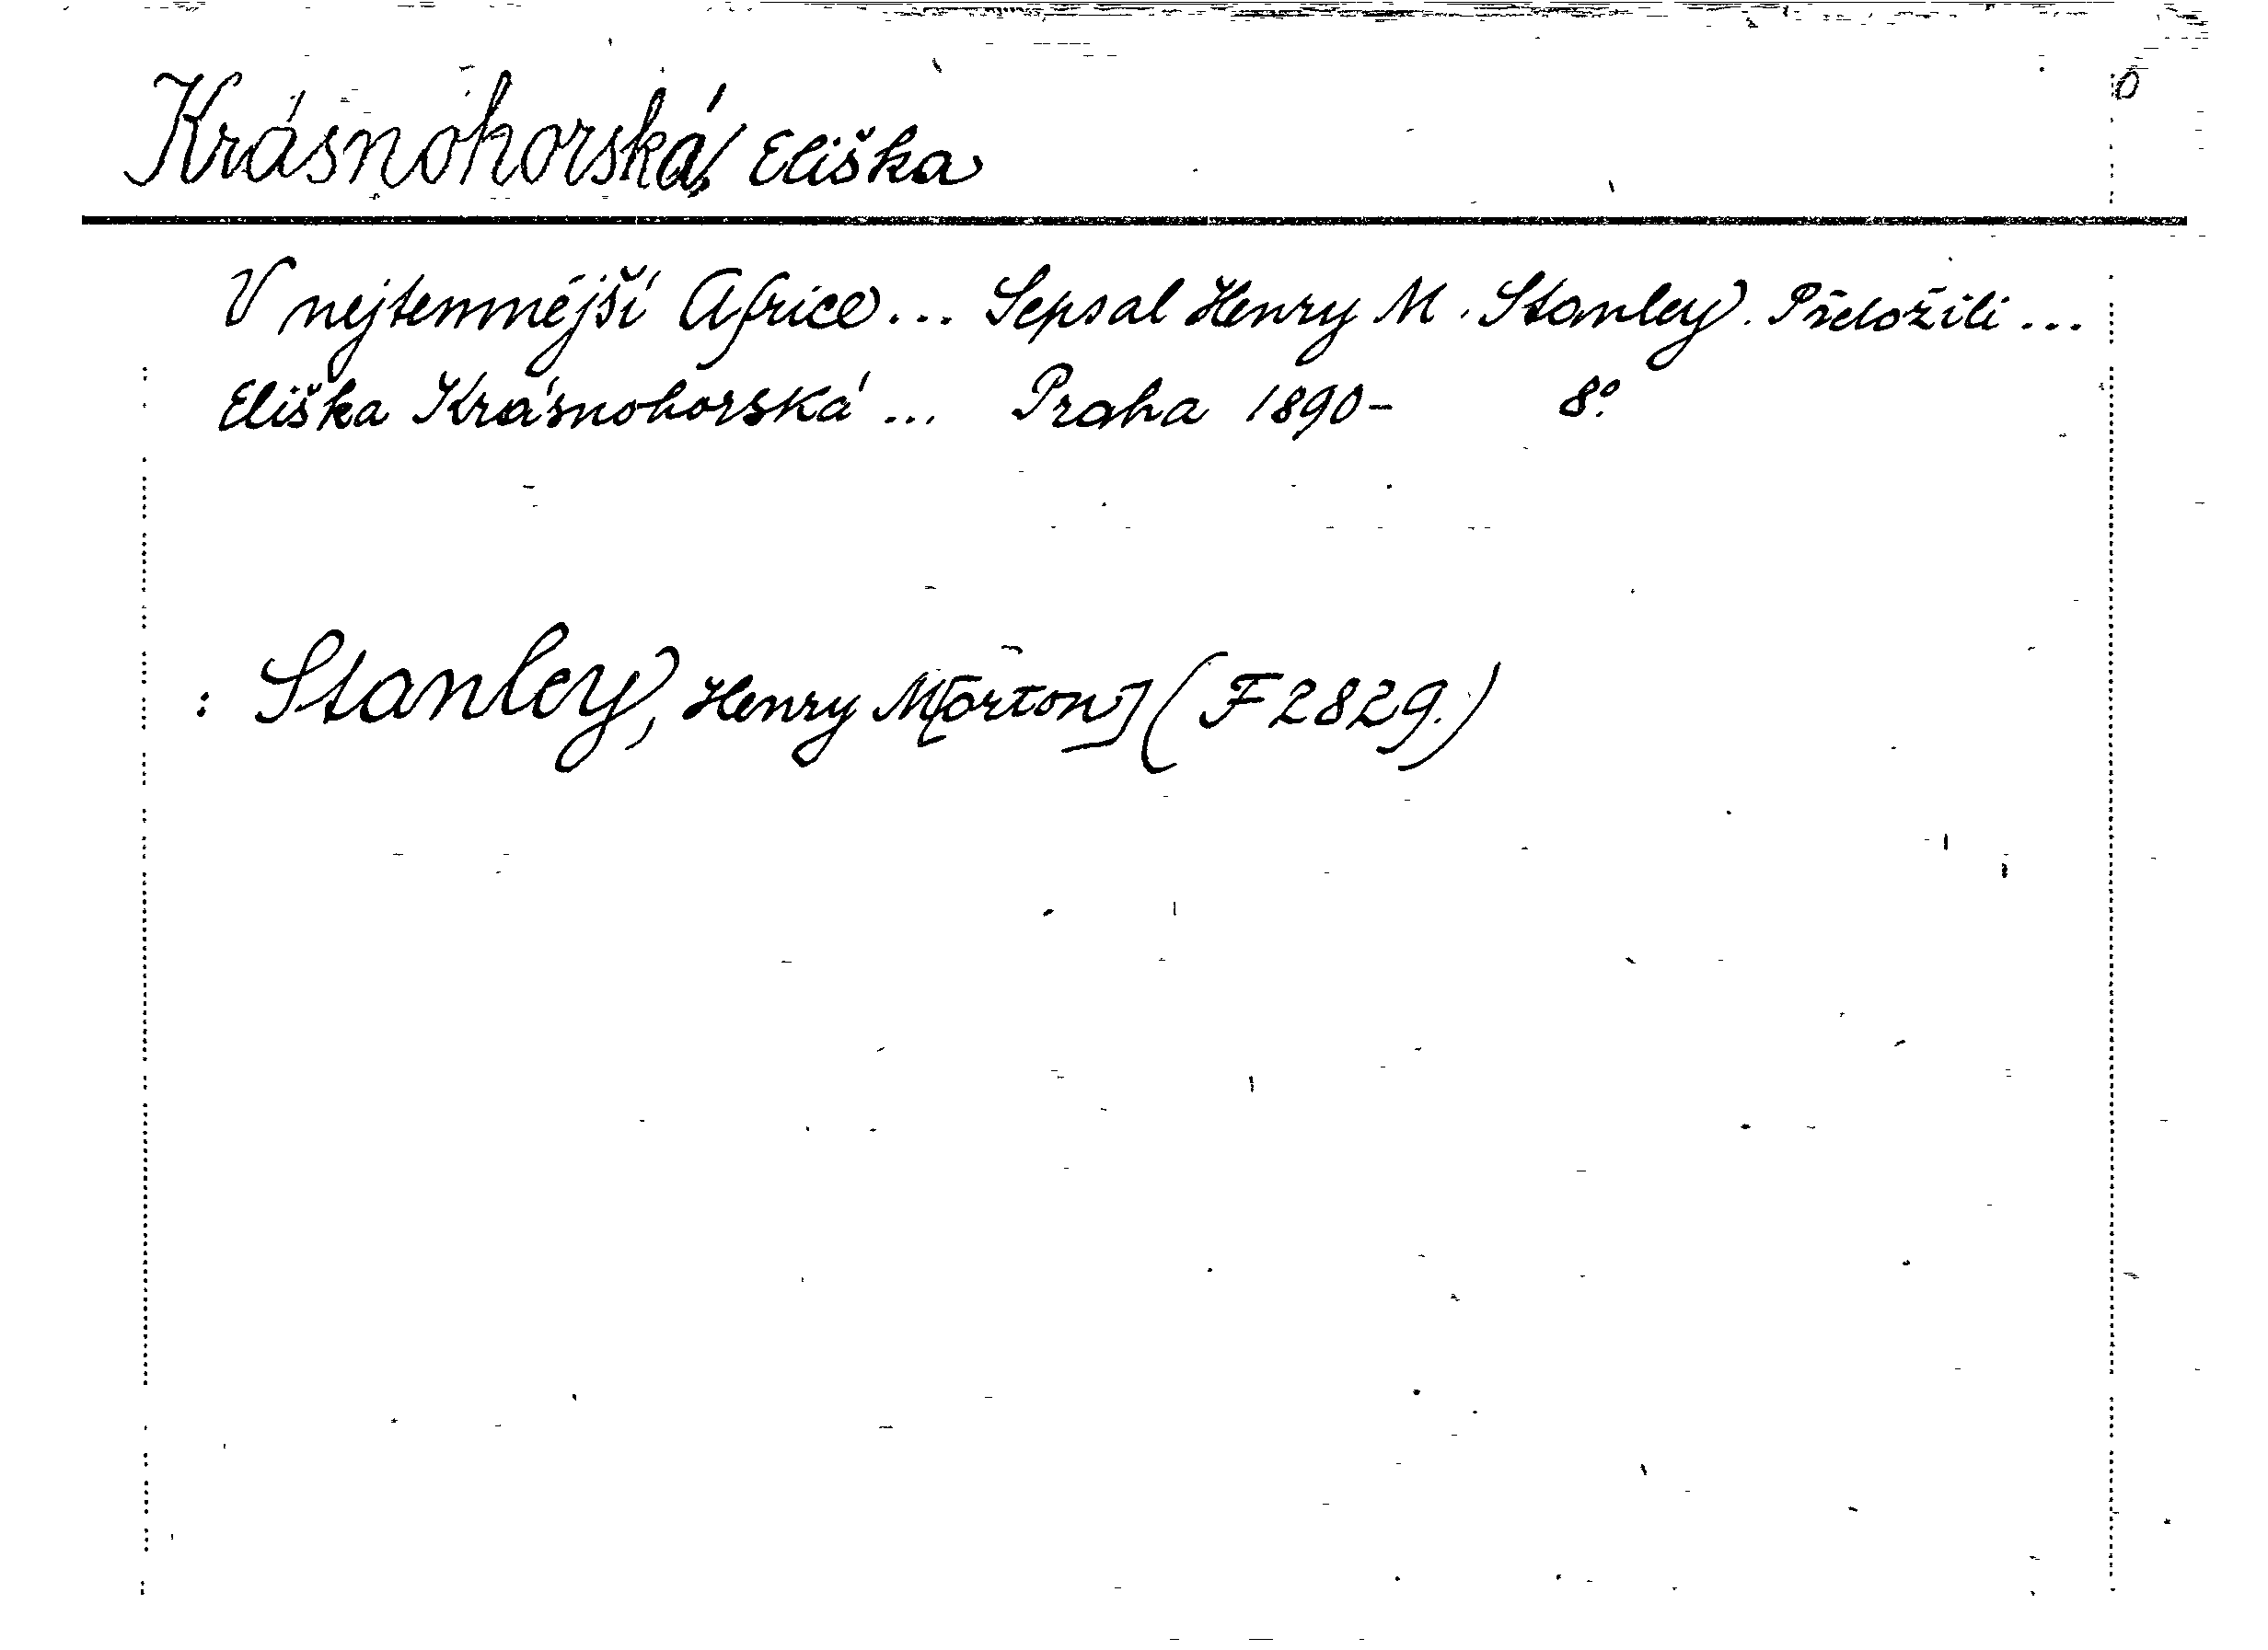 Krásnohorská, Eliška
V nejtemnějši Africe... Sepsal Henry M. Stanley. Přeložili...
Eliška Krásnohorská... Praha 1890- 8°.
: Stanley, Henry M[orton] (F 2829.)